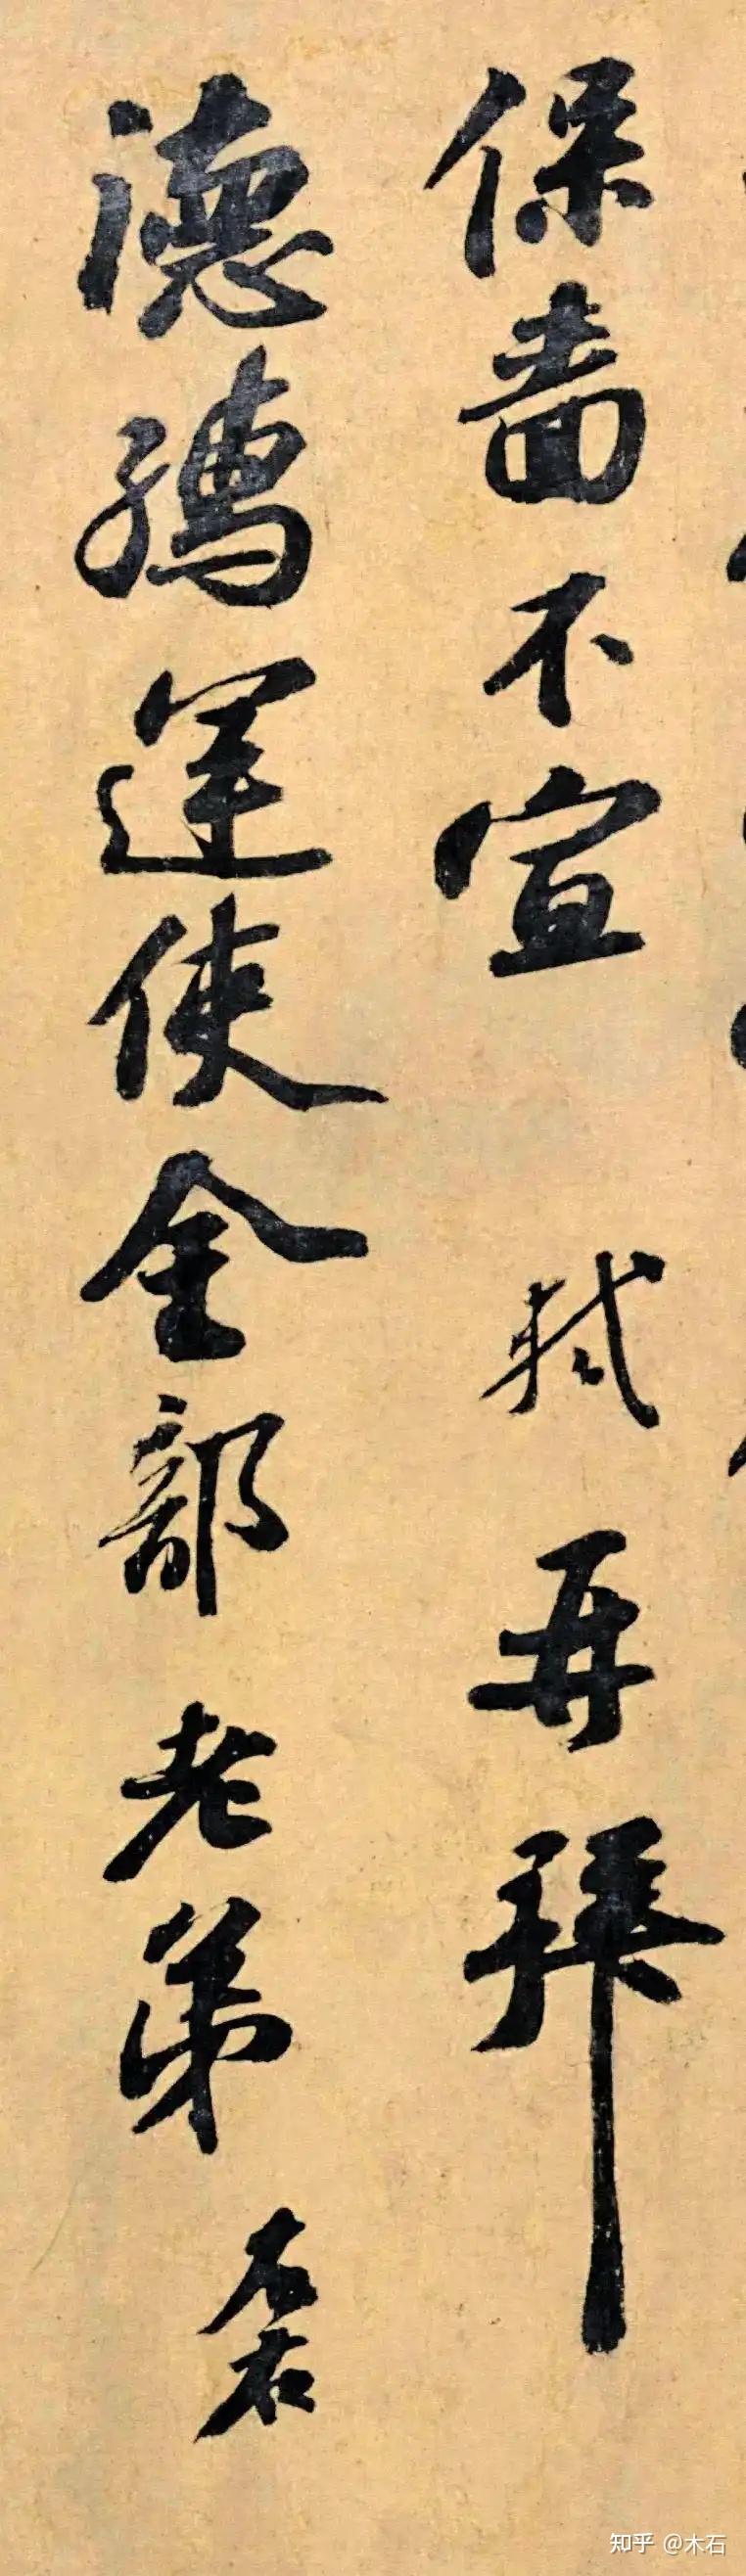 保啬不宣 轼再拜
德孺运使金部老弟左右
知乎 @木石